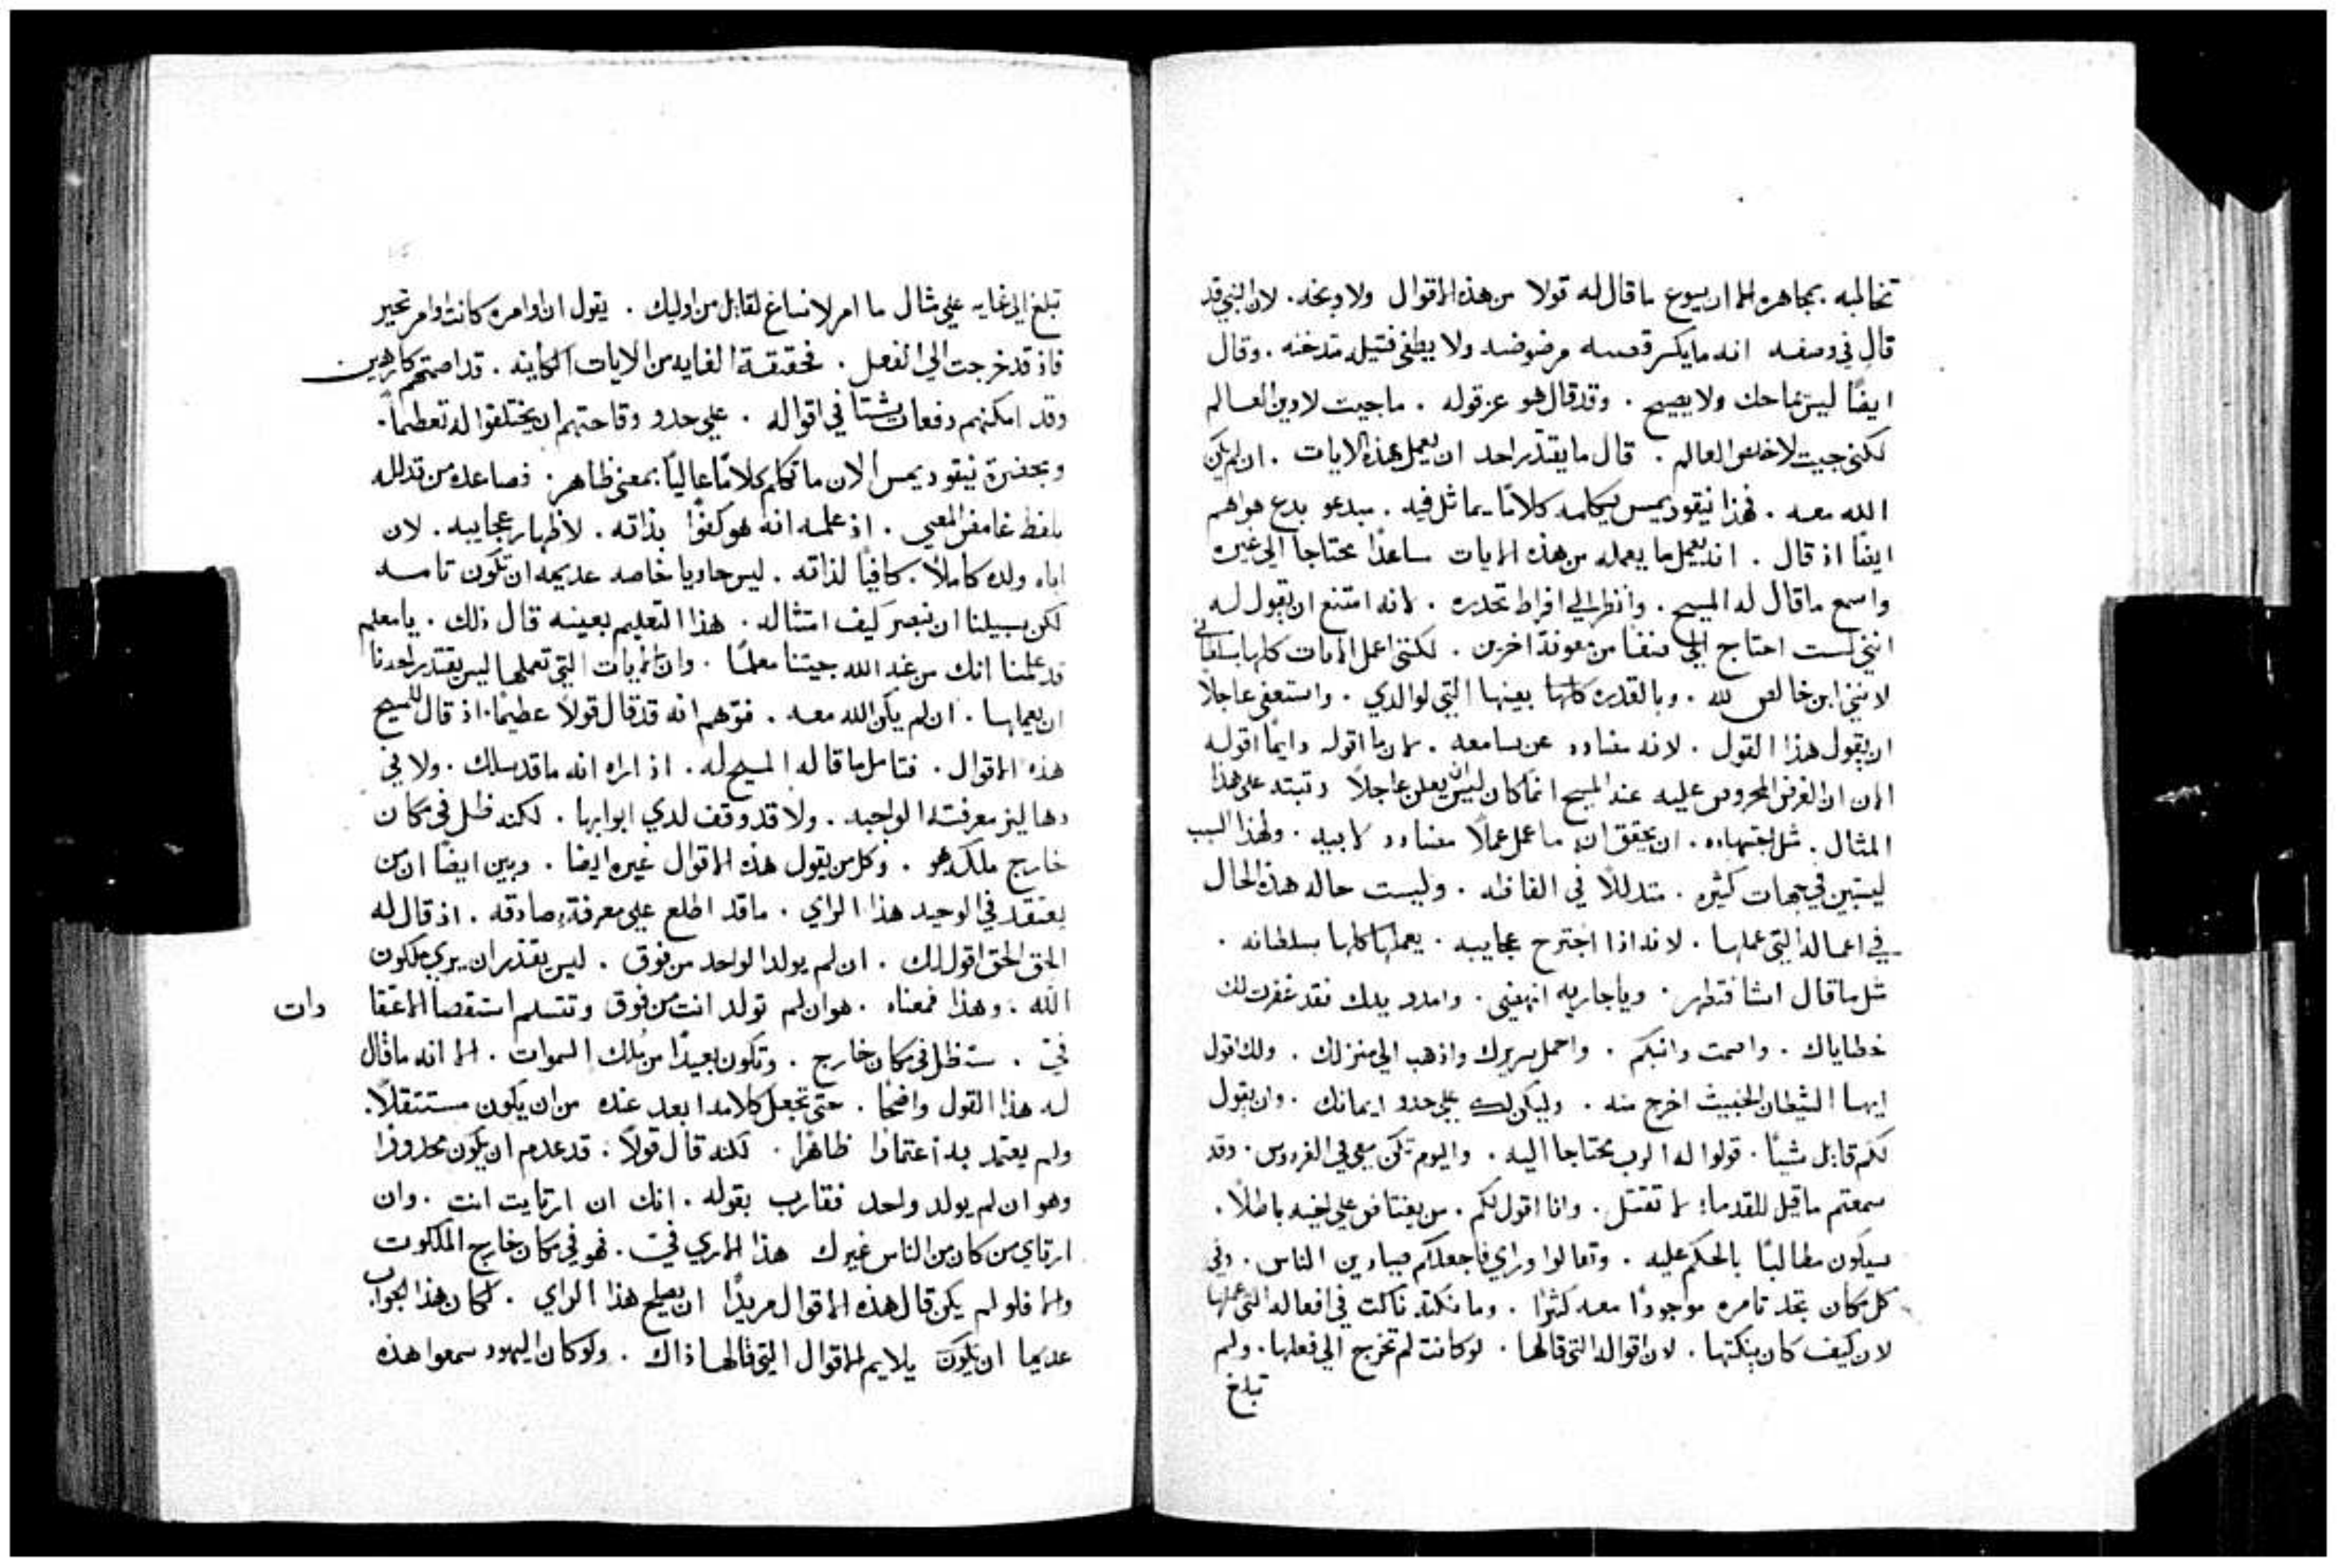 تخالبه بمجاهره الا ان يسوع ما قال له قولا من هذه الاقوال ولا وبخه. لان النبي قد
قال في وصفه انه ما يكسر قصبه مرضوضه ولا يطفي فتيله مدخنه. وقال
ايضًا ليس يماحك ولا يصيح. وقد قال هو عز قوله. ما جيت لادين العالم
لكنني جيت لاخلص العالم. قال ما يقتدر احد ان يعمل هذه الايات. ان لم يكن
الله معه. فهذا نيقوديمس يكلمه كلامًا يماثل فيه. مبدعو بدع هواهم
ايضًا اذ قال. انه يعمل ما يعمله من هذه الايات ساعدًا محتاجا الي غيره
واسمع ما قال له المسيح. وانظر الي افراط تحدره. لانه امتنع ان يقول له
انني لست احتاج الي من معونة اخرين. لكنني اعمل الايات كلها بسلطاني
لانني ابن خالص لله. وبالقدره كلها بعينها التي لوالدي. واستعفي عاجلاً
ان يقول هذا القول. لانه مضادد عن سامعه. لان ما اقوله دايمًا اقوله
الان ان الغرض المحروص عليه عند المسيح انما كان ليس ان يعلن عاجلاً رتبته علي هذا
المثال. مثل اجتهاده. ان يحقق انه ما عمل عملاً مضادد لابيه. ولهذا السبب
ليستبين في جهات كثيره. متدللاً في الفاظه. وليست حاله هذه الحال
في اعماله التي عملها. لانه اذا اجترح عجايبه. يعملها كلها بسلطانه.
مثل ما قال اشا فتطهر. ويا جاريه انهضي. وامدد يدك فقد غفرت لك
خطاياك. واصمت وانبكم. واحمل سريرك واذهب الي منزلك. ولك اقول
ايها الشيطان الخبيث اخرج منه. وليكن لك علي حدو ايمانك. وان يقول
لكم قايل شيًا. قولوا له الرب محتاجا اليه. واليوم تكن معي في الفردوس. وقد
سمعتم ما قيل للقدما: لا تقتل. وانا اقول لكم. من يغتاض علي اخيه باطلاً.
سيكون مطالبًا بالحكم عليه. وتعالوا وراي فاجعلكم صيادين الناس. وفي
كل مكان تجد تامره موجودًا معه كثيرًا. وما نكته ناكت في افعاله التي عملها
لان كيف كان ينكتها. لان اقواله التي قالها. لو كانت لم تخرج الي فعلها. ولم
تبلغ
تبلغ الي غايه علي مثال ما امر لانساغ لقايل من اوليك. يقول ان اوامره كانت اوامر تحير
فاذ قد خرجت الي الفعل. فحقيقة الغايه من الايات الكاينه. قد اصمتهم كارهين
وقد امكنهم دفعات شتا في اقواله. علي حدو وقاحتهم ان يختلقوا له تعظمًا.
وبحضرة نيقوديمس الان ما تكلم كلامًا عاليًا بمعني ظاهر. فصاعده من تدلله
بلفظ غامض المعني. اذ علمه انه هو كفوًا بذاته. لاظهار عجايبه. لان
اباه ولده كاملاً. كافيًا لذاته. ليس حاويا خاصه عديمه ان تكون تامه
لكن سبيلنا ان نبصر كيف امتثاله. هذا التعليم بعينه قال ذلك. يا معلم
قد علمنا انك من عند الله جيتنا معلمًا. وان الايات التي تعملها ليس يقتدر احدنا
ان يعملها. ان لم يكن الله معه. فتوهم انه قد قال قولاً عظيمًا. اذ قال للمسيح
هذه الاقوال. فتامل ما قاله المسيح له. اذ اراه انه ما قد سلك. ولا في
دهاليز معرفته الواجبه. ولا قد وقف لدي ابوابها. لكنه ظل في مكان
خارج ملك هو. وكل من يقول هذه الاقوال غيره ايضا. وبين ايضًا ان من
يعتقد في الوحيد هذا الراي. ما قد اطلع علي معرفة صادقه. اذ قال له
الحق الحق اقول لك. ان لم يولد الواحد من فوق. ليس يقتدر ان يري ملكوت
الله. وهذا فمعناه. هو ان لم تولد انت من فوق وتتسلم استقصا الاعتقا دات
فيّ. ستظل في مكان خارج. وتكون بعيدًا من ملك السموات. الا انه ما قال
له هذا القول واضحًا. حتي تجعل كلامه ابعد عنده من ان يكون مستثقلاً.
ولم يعتمد به اعتمادًا ظاهرًا. لكنه قال قولاً. قد عدم ان يكون محدودًا
وهو ان لم يولد واحد فقارب بقوله. انك ان ارتايت انت. وان
ارتاي من كان من الناس غيرك هذا الراي فيّ. فهو في مكان خارج الملكوت
والا فلو لم يكن قال هذه الاقوال مريدًا ان يصلح هذا الراي. لكان هذا الجواب
عديما ان يكون يلايم الاقوال التي قالها ذاك. ولو كان اليهود سمعوا هذه